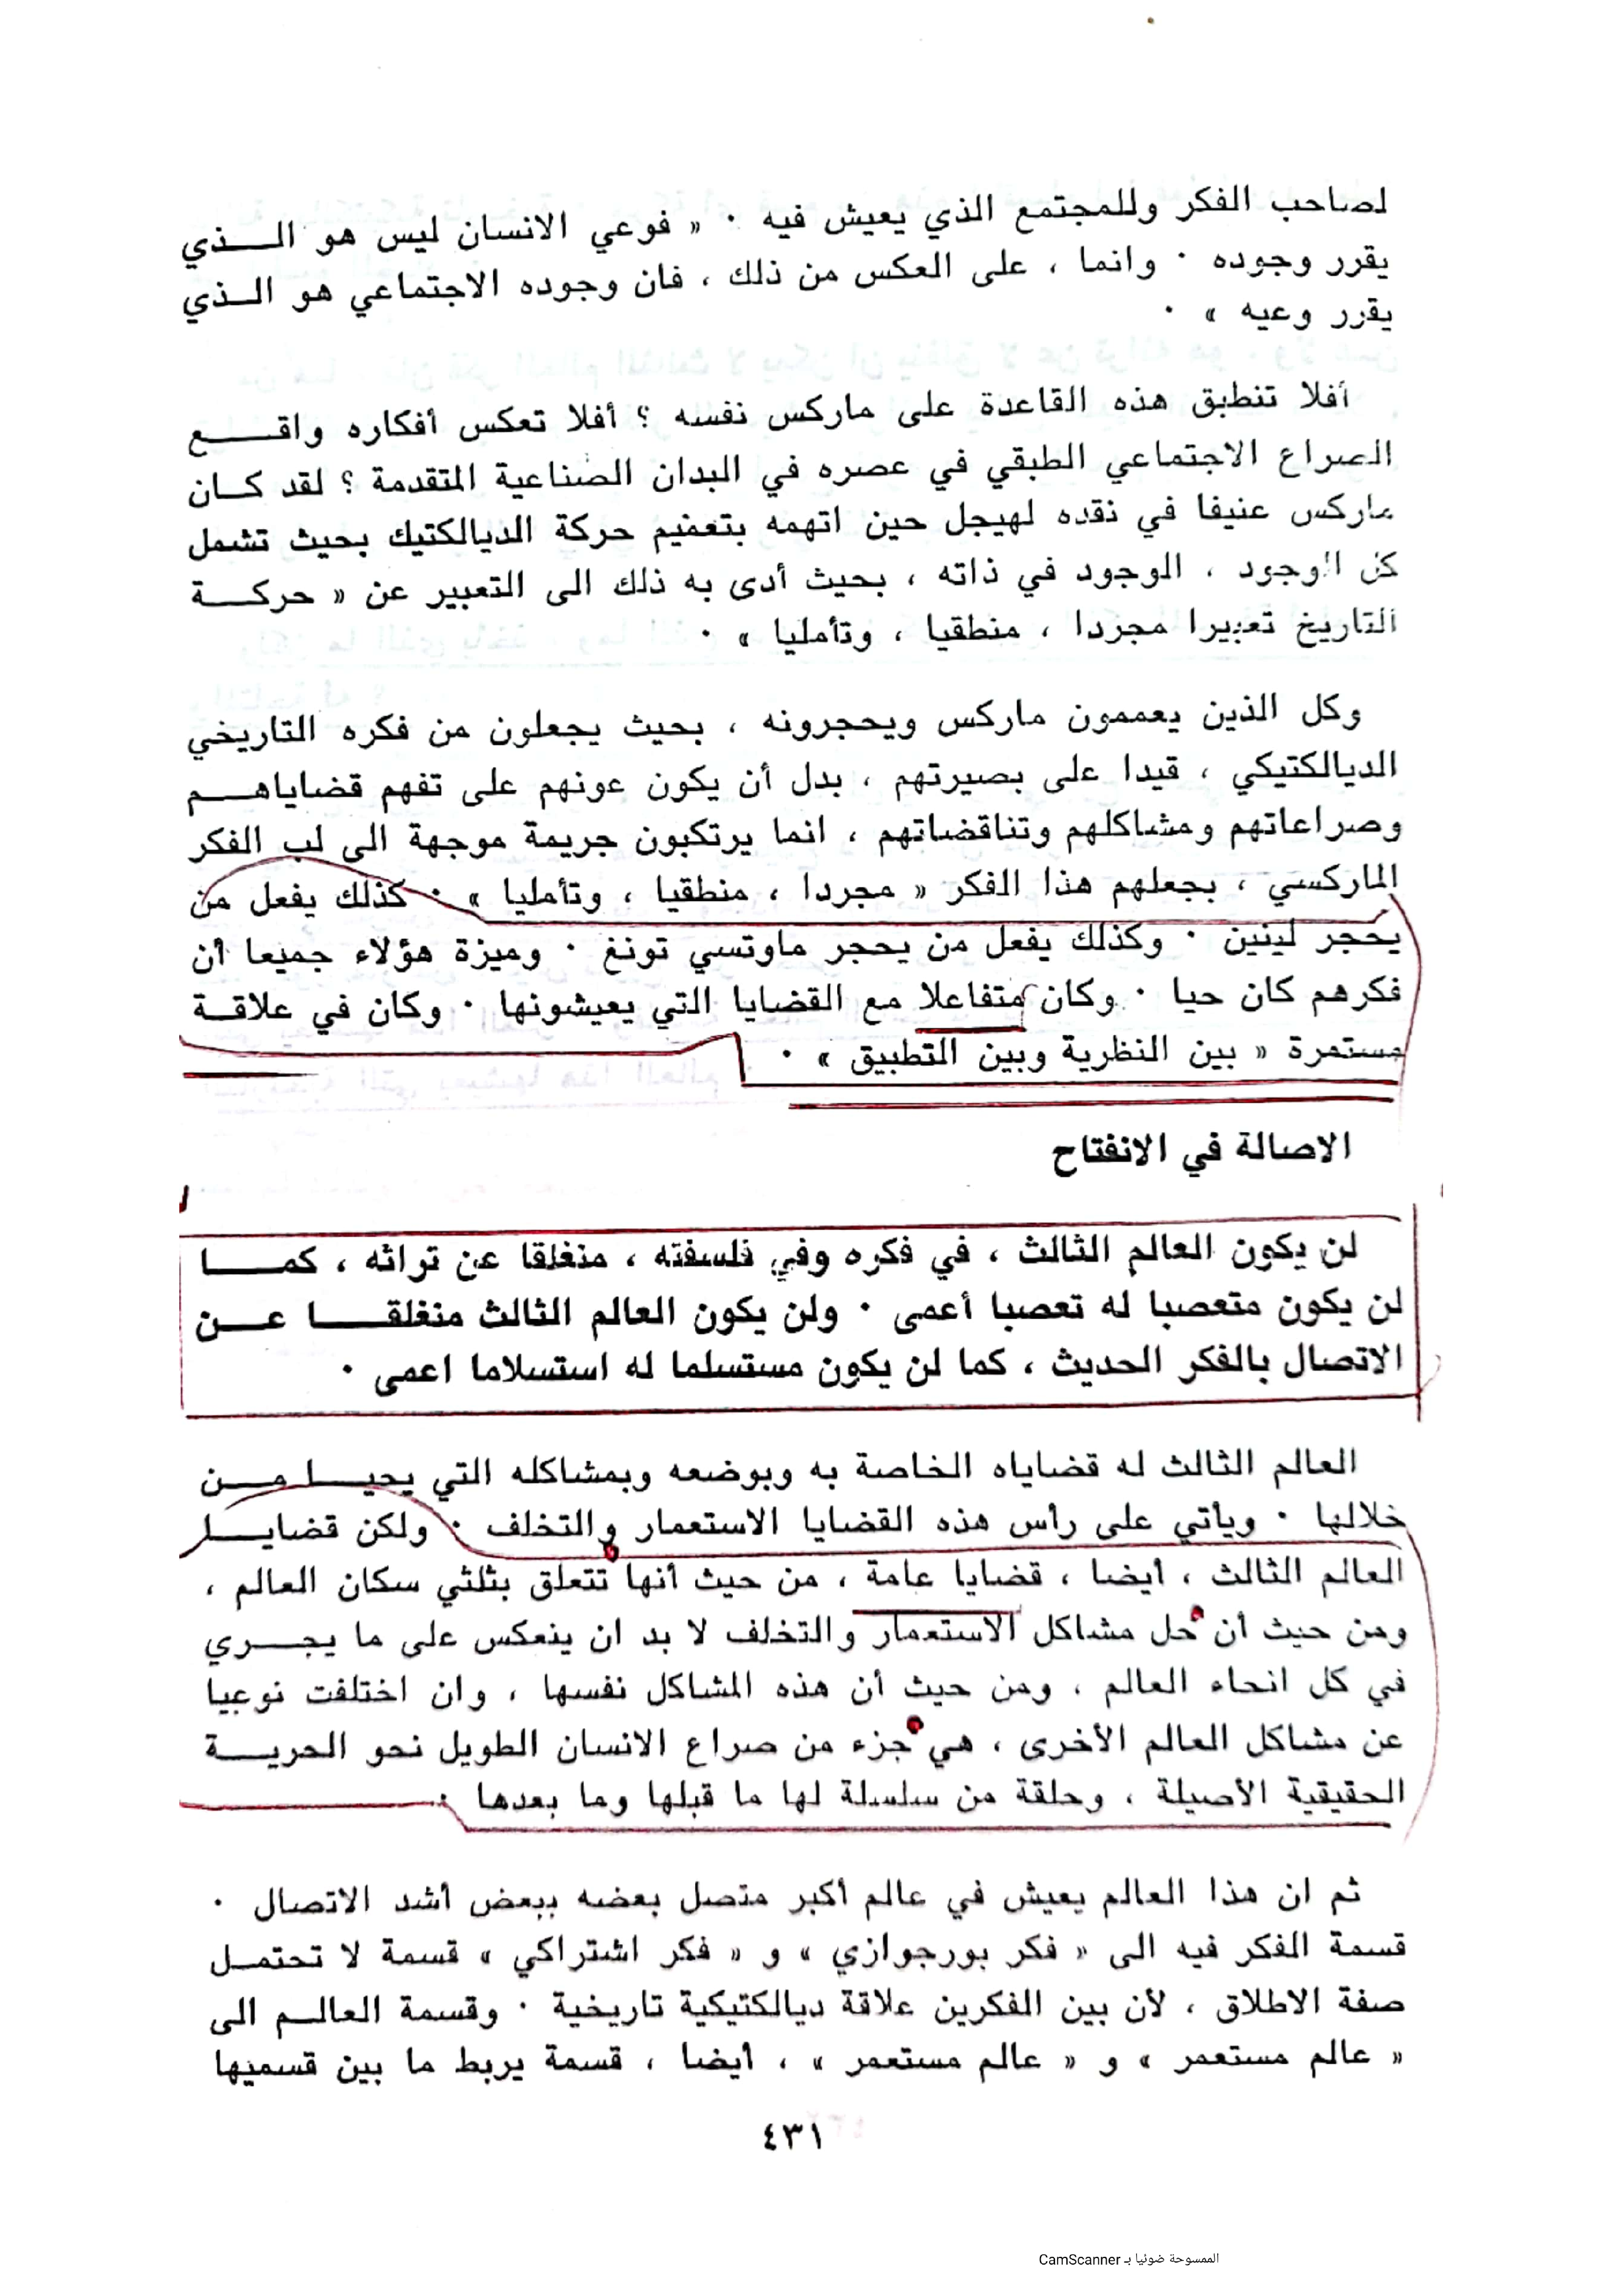 لصاحب الفكر وللمجتمع الذي يعيش فيه ٠ « فوعي الانسان ليس هو الـــذي
يقرر وجوده ٠ وانما ، على العكس من ذلك ، فان وجوده الاجتماعي هو الــذي
يقرر وعيه » ٠
أفلا تنطبق هذه القاعدة على ماركس نفسه ؟ أفلا تعكس أفكاره واقــــع
الصراع الاجتماعي الطبقي في عصره في البدان الصناعية المتقدمة ؟ لقد كــان
ماركس عنيفا في نقده لهيجل حين اتهمه بتعميم حركة الديالكتيك بحيث تشمل
كل الوجود ، الوجود في ذاته ، بحيث أدى به ذلك الى التعبير عن « حركـــة
التاريخ تعبيرا مجردا ، منطقيا ، وتأمليا » ٠
وكل الذين يعممون ماركس ويحجرونه ، بحيث يجعلون من فكره التاريخي
الديالكتيكي ، قيدا على بصيرتهم ، بدل أن يكون عونهم على تفهم قضاياهـــم
وصراعاتهم ومشاكلهم وتناقضاتهم ، انما يرتكبون جريمة موجهة الى لب الفكر
الماركسي ، بجعلهم هذا الفكر « مجردا ، منطقيا ، وتأمليا » ٠ كذلك يفعل من
يحجر لينين ٠ وكذلك يفعل من يحجر ماوتسي تونغ ٠ وميزة هؤلاء جميعا أن
فكرهم كان حيا ٠ وكان متفاعلا مع القضايا التي يعيشونها ٠ وكان في علاقــة
مستمرة « بين النظرية وبين التطبيق » ٠
الاصالة في الانفتاح
لن يكون العالم الثالث ، في فكره وفي فلسفته ، منغلقا عن تراثه ، كمـــا
لن يكون متعصبا له تعصبا أعمى ٠ ولن يكون العالم الثالث منغلقـــا عـــن
الاتصال بالفكر الحديث ، كما لن يكون مستسلما له استسلاما اعمى ٠
العالم الثالث له قضاياه الخاصة به وبوضعه وبمشاكله التي يحيــا مـــن
خلالها ٠ ويأتي على رأس هذه القضايا الاستعمار والتخلف ٠ ولكن قضايـــا
العالم الثالث ، أيضا ، قضايا عامة ، من حيث أنها تتعلق بثلثي سكان العالم ،
ومن حيث أن حل مشاكل الاستعمار والتخلف لا بد ان ينعكس على ما يجـــري
في كل انحاء العالم ، ومن حيث أن هذه المشاكل نفسها ، وان اختلفت نوعيا
عن مشاكل العالم الأخرى ، هي جزء من صراع الانسان الطويل نحو الحريـــة
الحقيقية الأصيلة ، وحلقة من سلسلة لها ما قبلها وما بعدها ٠
ثم ان هذا العالم يعيش في عالم أكبر متصل بعضه ببعض أشد الاتصال ٠
قسمة الفكر فيه الى « فكر بورجوازي » و « فكر اشتراكي » قسمة لا تحتمــل
صفة الاطلاق ، لأن بين الفكرين علاقة ديالكتيكية تاريخية ٠ وقسمة العالــم الى
« عالم مستعمر » و « عالم مستعمر » ، أيضا ، قسمة يربط ما بين قسميها
٤٣١
الممسوحة ضوئيا بـ CamScanner